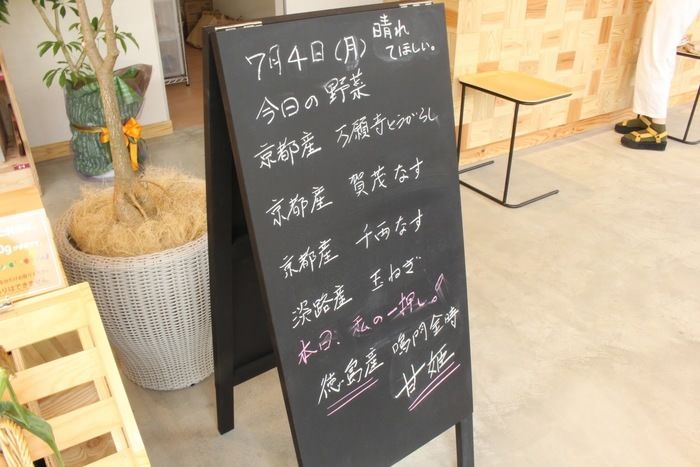 7月4日(月) 晴れてほしい。
今日の野菜
京都産 万願寺とうがらし
京都産 賀茂なす
京都産 千両なす
淡路産 玉ねぎ
本日、私の一押し。
徳島産 鳴門金時
甘姫